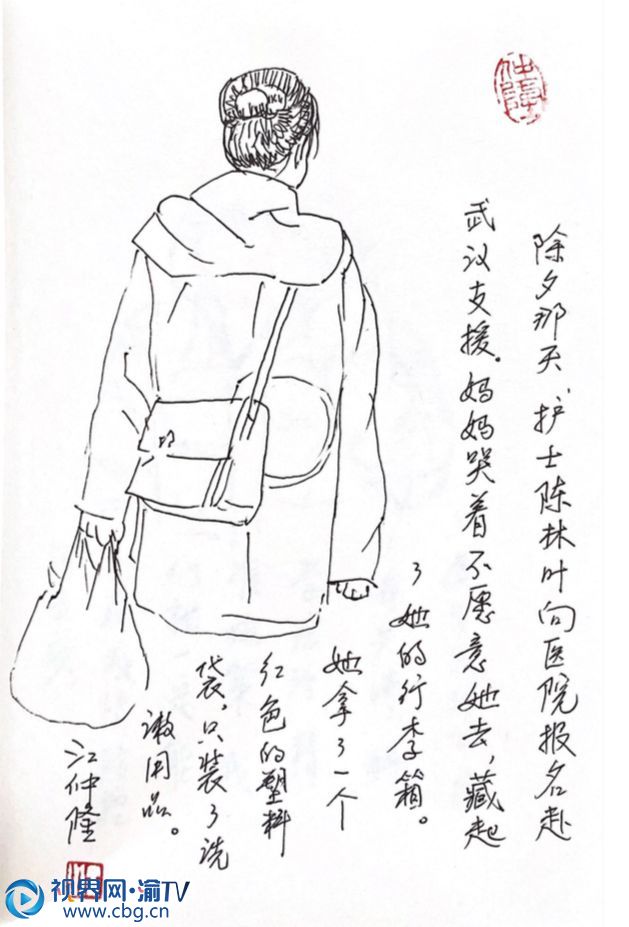 除夕那天，护士陈林叶向医院报名赴
武汉支援。妈妈哭着不愿意她去，藏起
了她的行李箱。
她拿了一个
红色的塑料
袋，只装了洗
漱用品。
江仲隆
视界网·渝TV
www.cbg.cn